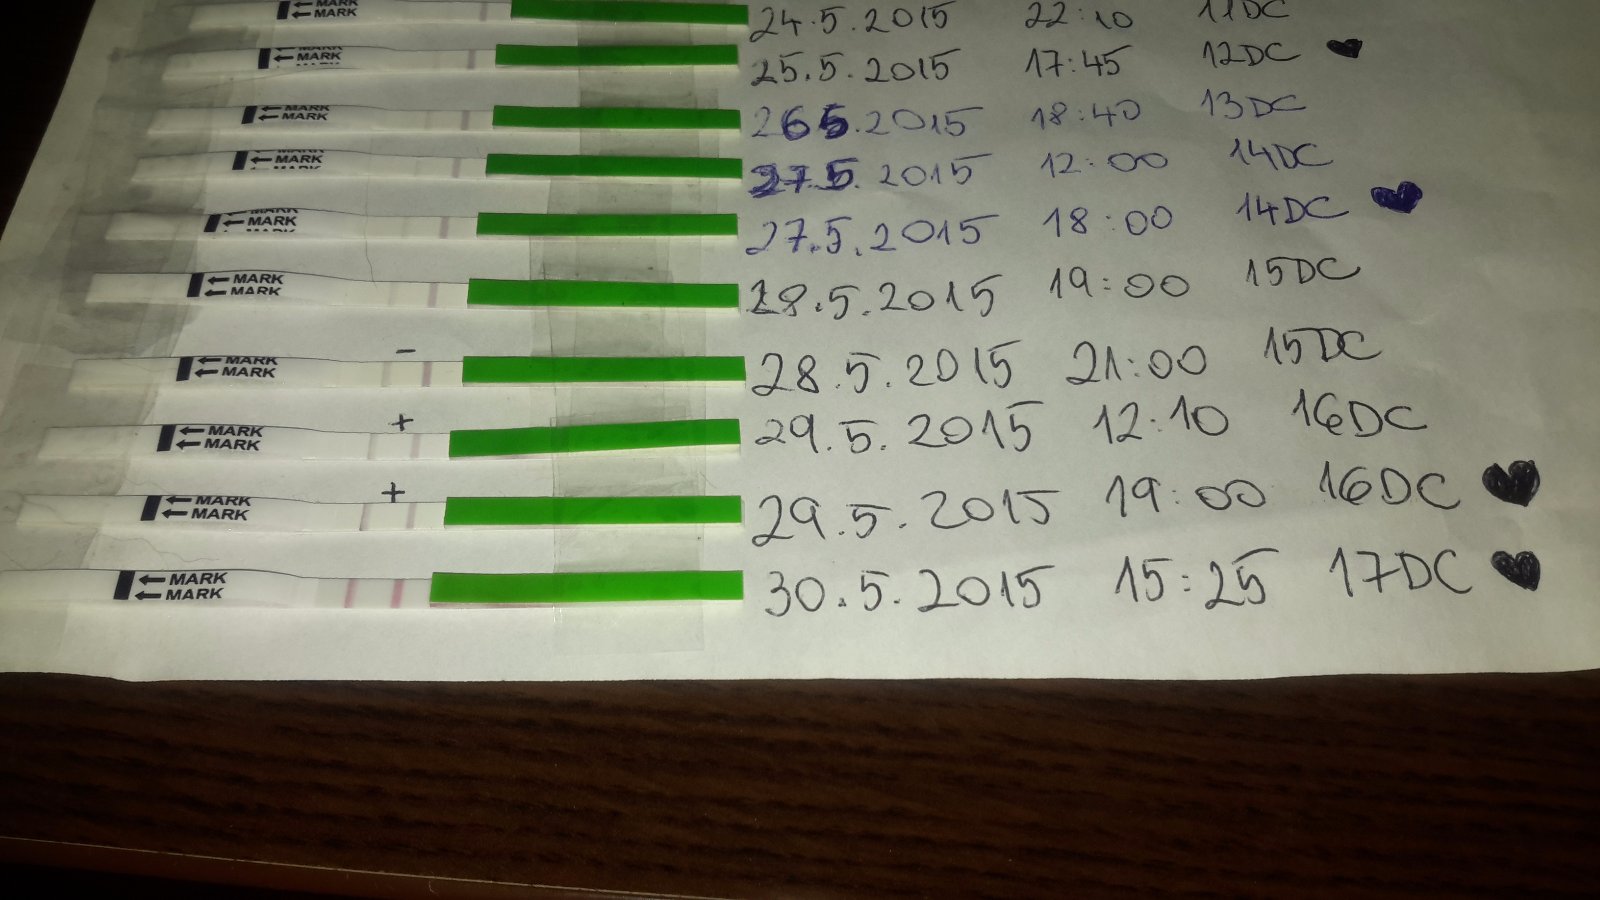 MARK MARK 24.5.2015 22:10 11DC
MARK 25.5.2015 17:45 12DC
MARK MARK 26 5.2015 18:40 13DC
MARK MARK 27 5. 2015 12:00 14DC
MARK MARK 27.5.2015 18:00 14DC
MARK MARK 28.5.2015 19:00 15DC
-
MARK MARK 28.5.2015 21:00 15DC
+
MARK MARK 29.5.2015 12:10 16DC
+
MARK MARK 29.5.2015 19:00 16DC
MARK MARK 30.5.2015 15:25 17DC